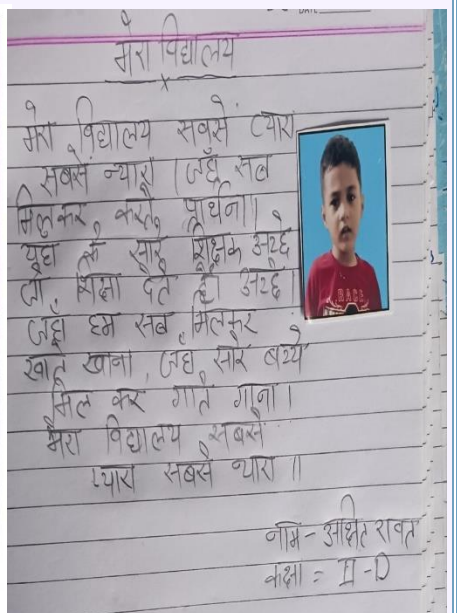 DATE
मेरा विद्यालय
मेरा विद्यालय सबसे प्यारा
सबसे न्यारा । जहाँ सब
मिलकर करते प्रार्थना।
यहा के सारे शिक्षक अच्छे
जो शिक्षा देते है अच्छे।
जहाँ हम सब मिलकर
खाते खाना, जहाँ सारे बच्चे
मिल कर गाते गाना।
मेरा विद्यालय सबसे
प्यारा सबसे न्यारा ॥
RACE
नाम - अक्षित रावत
कक्षा = II - D